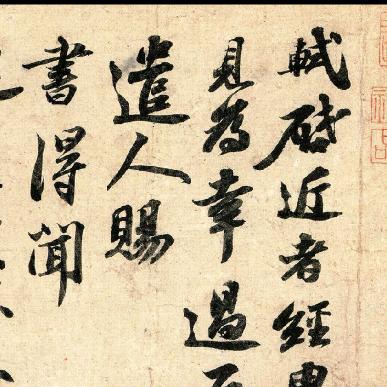 軾啓近者經由
見為幸過
遣人賜
書得聞